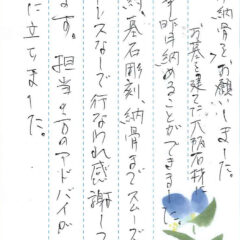 納骨をお願いしました。
お墓を建てた大阪石材に
昨年納めることができました。
墓石彫刻、納骨までスムーズ
スなしで行なわれ感謝して
ます。担当の方のアドバイが
に立ちました。